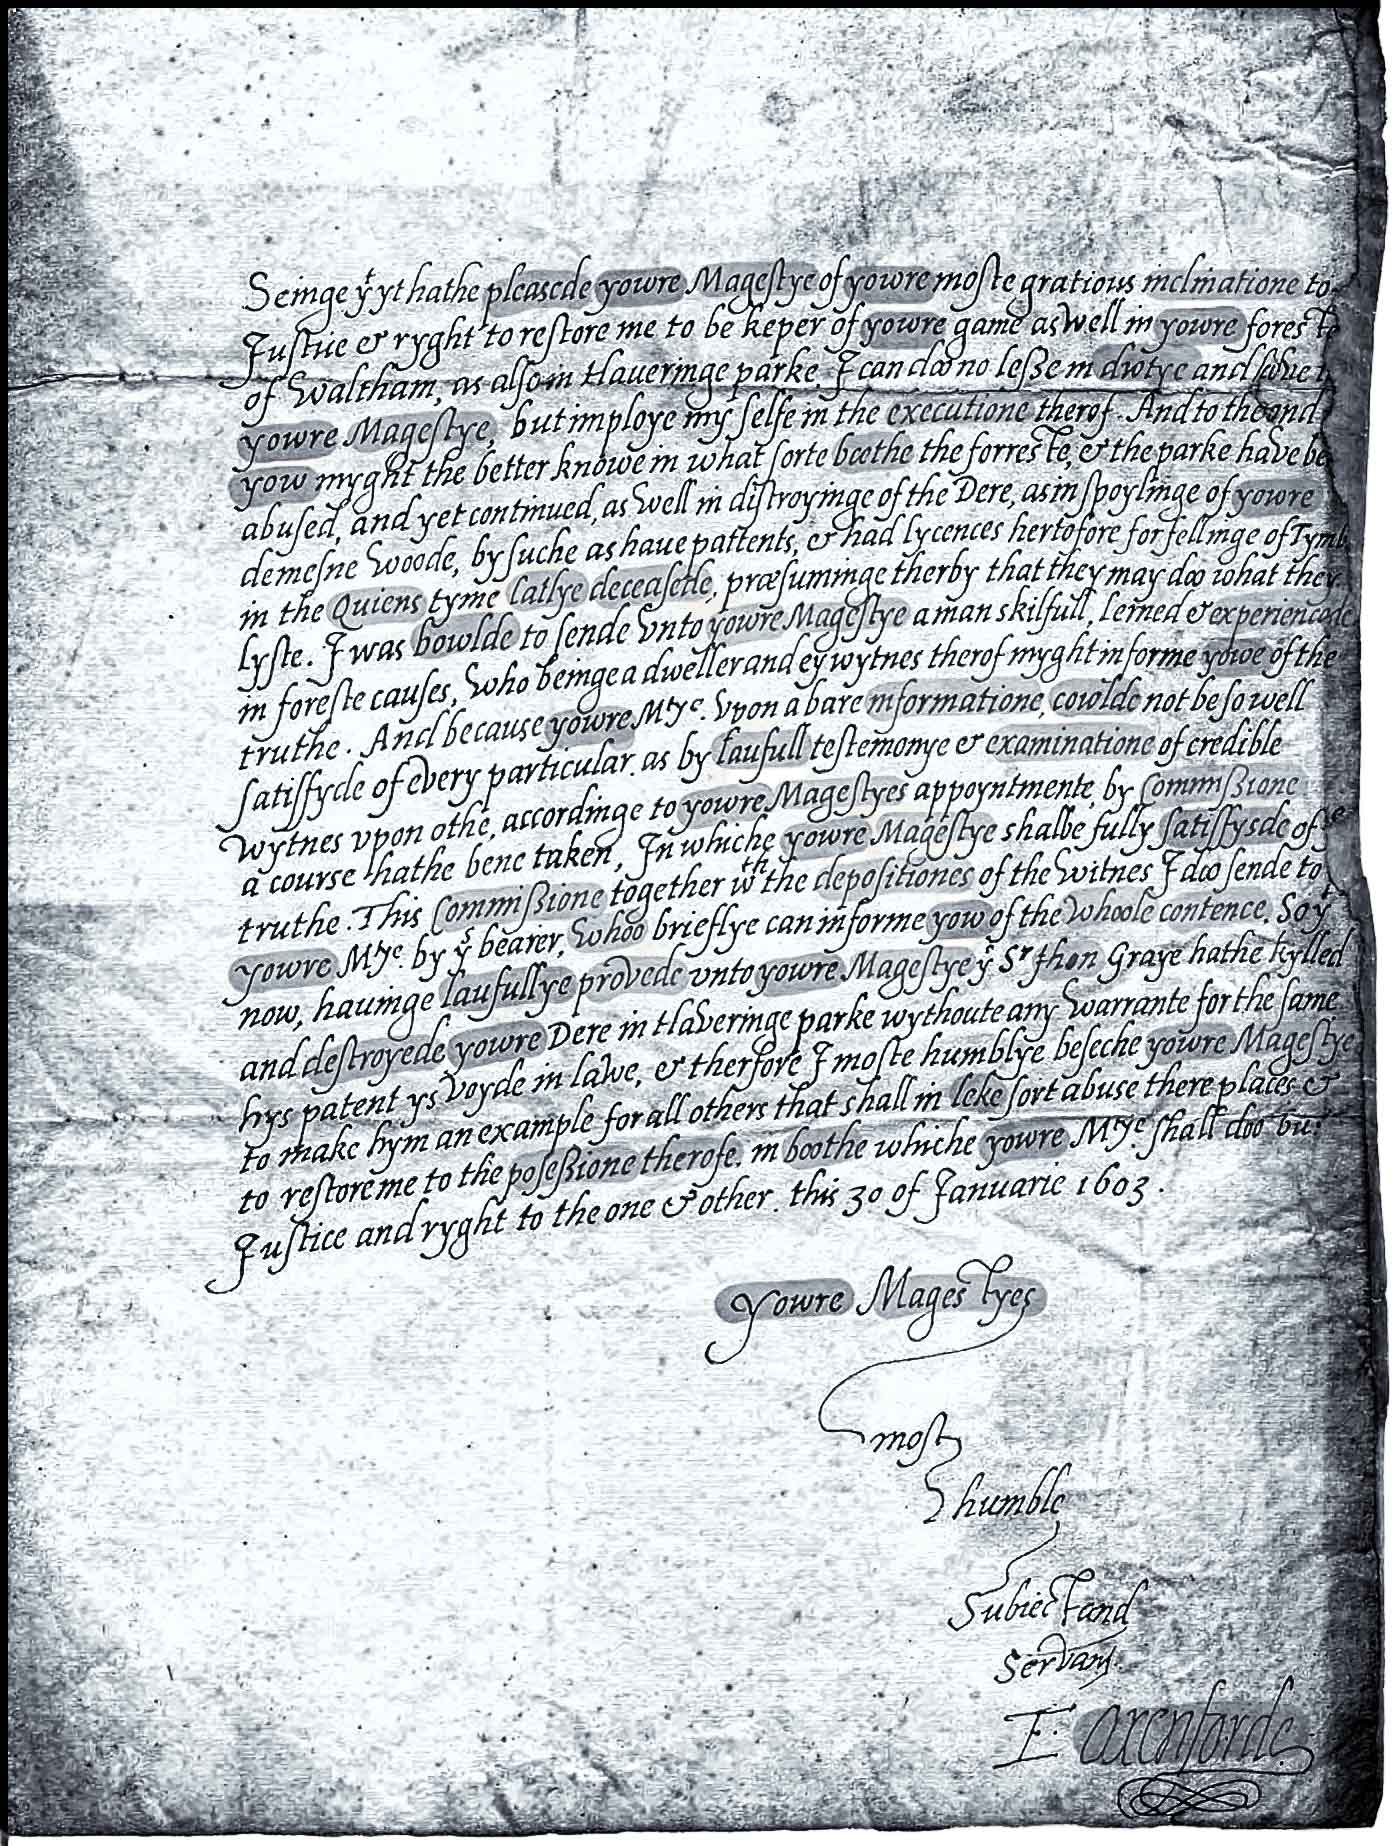 Seinge yt yt hathe pleascde yowre Magestye of yowre moste gratious inclinatione to
Justice & ryght to restore me to be keper of yowre game as well in yowre foreste
of Waltham, as also in Haueringe parke. I can doo no lesse in dwtye and
yowre Magestye, but imploye my selfe in the executione therof. And to the end
yow myght the better knowe in what sorte boothe the forreste, & the parke have be
abused, and yet continued, as well in distroyinge of the Dere, as in spoylinge of yowre
demesne woode, by suche as haue pattents, & had lycences hertofore for fellinge of Tymb
in the Quiens tyme latlye deceasede, præsuminge therby that they may doo what they
lyste. I was bowlde to sende vnto yowre Magestye a man skilfull, lerned & experiencede
in foreste causes, who beinge a dweller and ey wytnes therof myght informe yowe of the
truthe. And because yowre Mtye. vpon a bare informatione, cowlde not be so well
satisfyde of every particular. as by laufull testemonye & examinatione of credible
wytnes vpon othe, accordinge to yowre Magestyes appoyntmente, by Commissione
a course hathe bene taken, In whiche yowre Magestye shalbe fully satisfysde of ye
truthe. This Commissione together wth the depositiones of the witnes I doo sende to
yowre Mtye. by ys bearer, whoo brieflye can informe yow of the whoole contence. So yt
now, hauinge laufullye provede vnto yowre Magestye yt Sr Jhon Graye hathe kylled
and destroyede yowre Dere in Haveringe parke wythoute any warrante for the same
hys patent ys voyde in lawe, & therfore I moste humblye beseche yowre Magestye
to make hym an example for all others that shall in leke sort abuse there places &
to restore me to the posessione therofe. in boothe whiche yowre Mtye. shall doo but
Justice and ryght to the one & other. this 30 of Januarie 1603.
yowre Magestyes
most
humble
Subiect and
Servant
E. Oxenforde